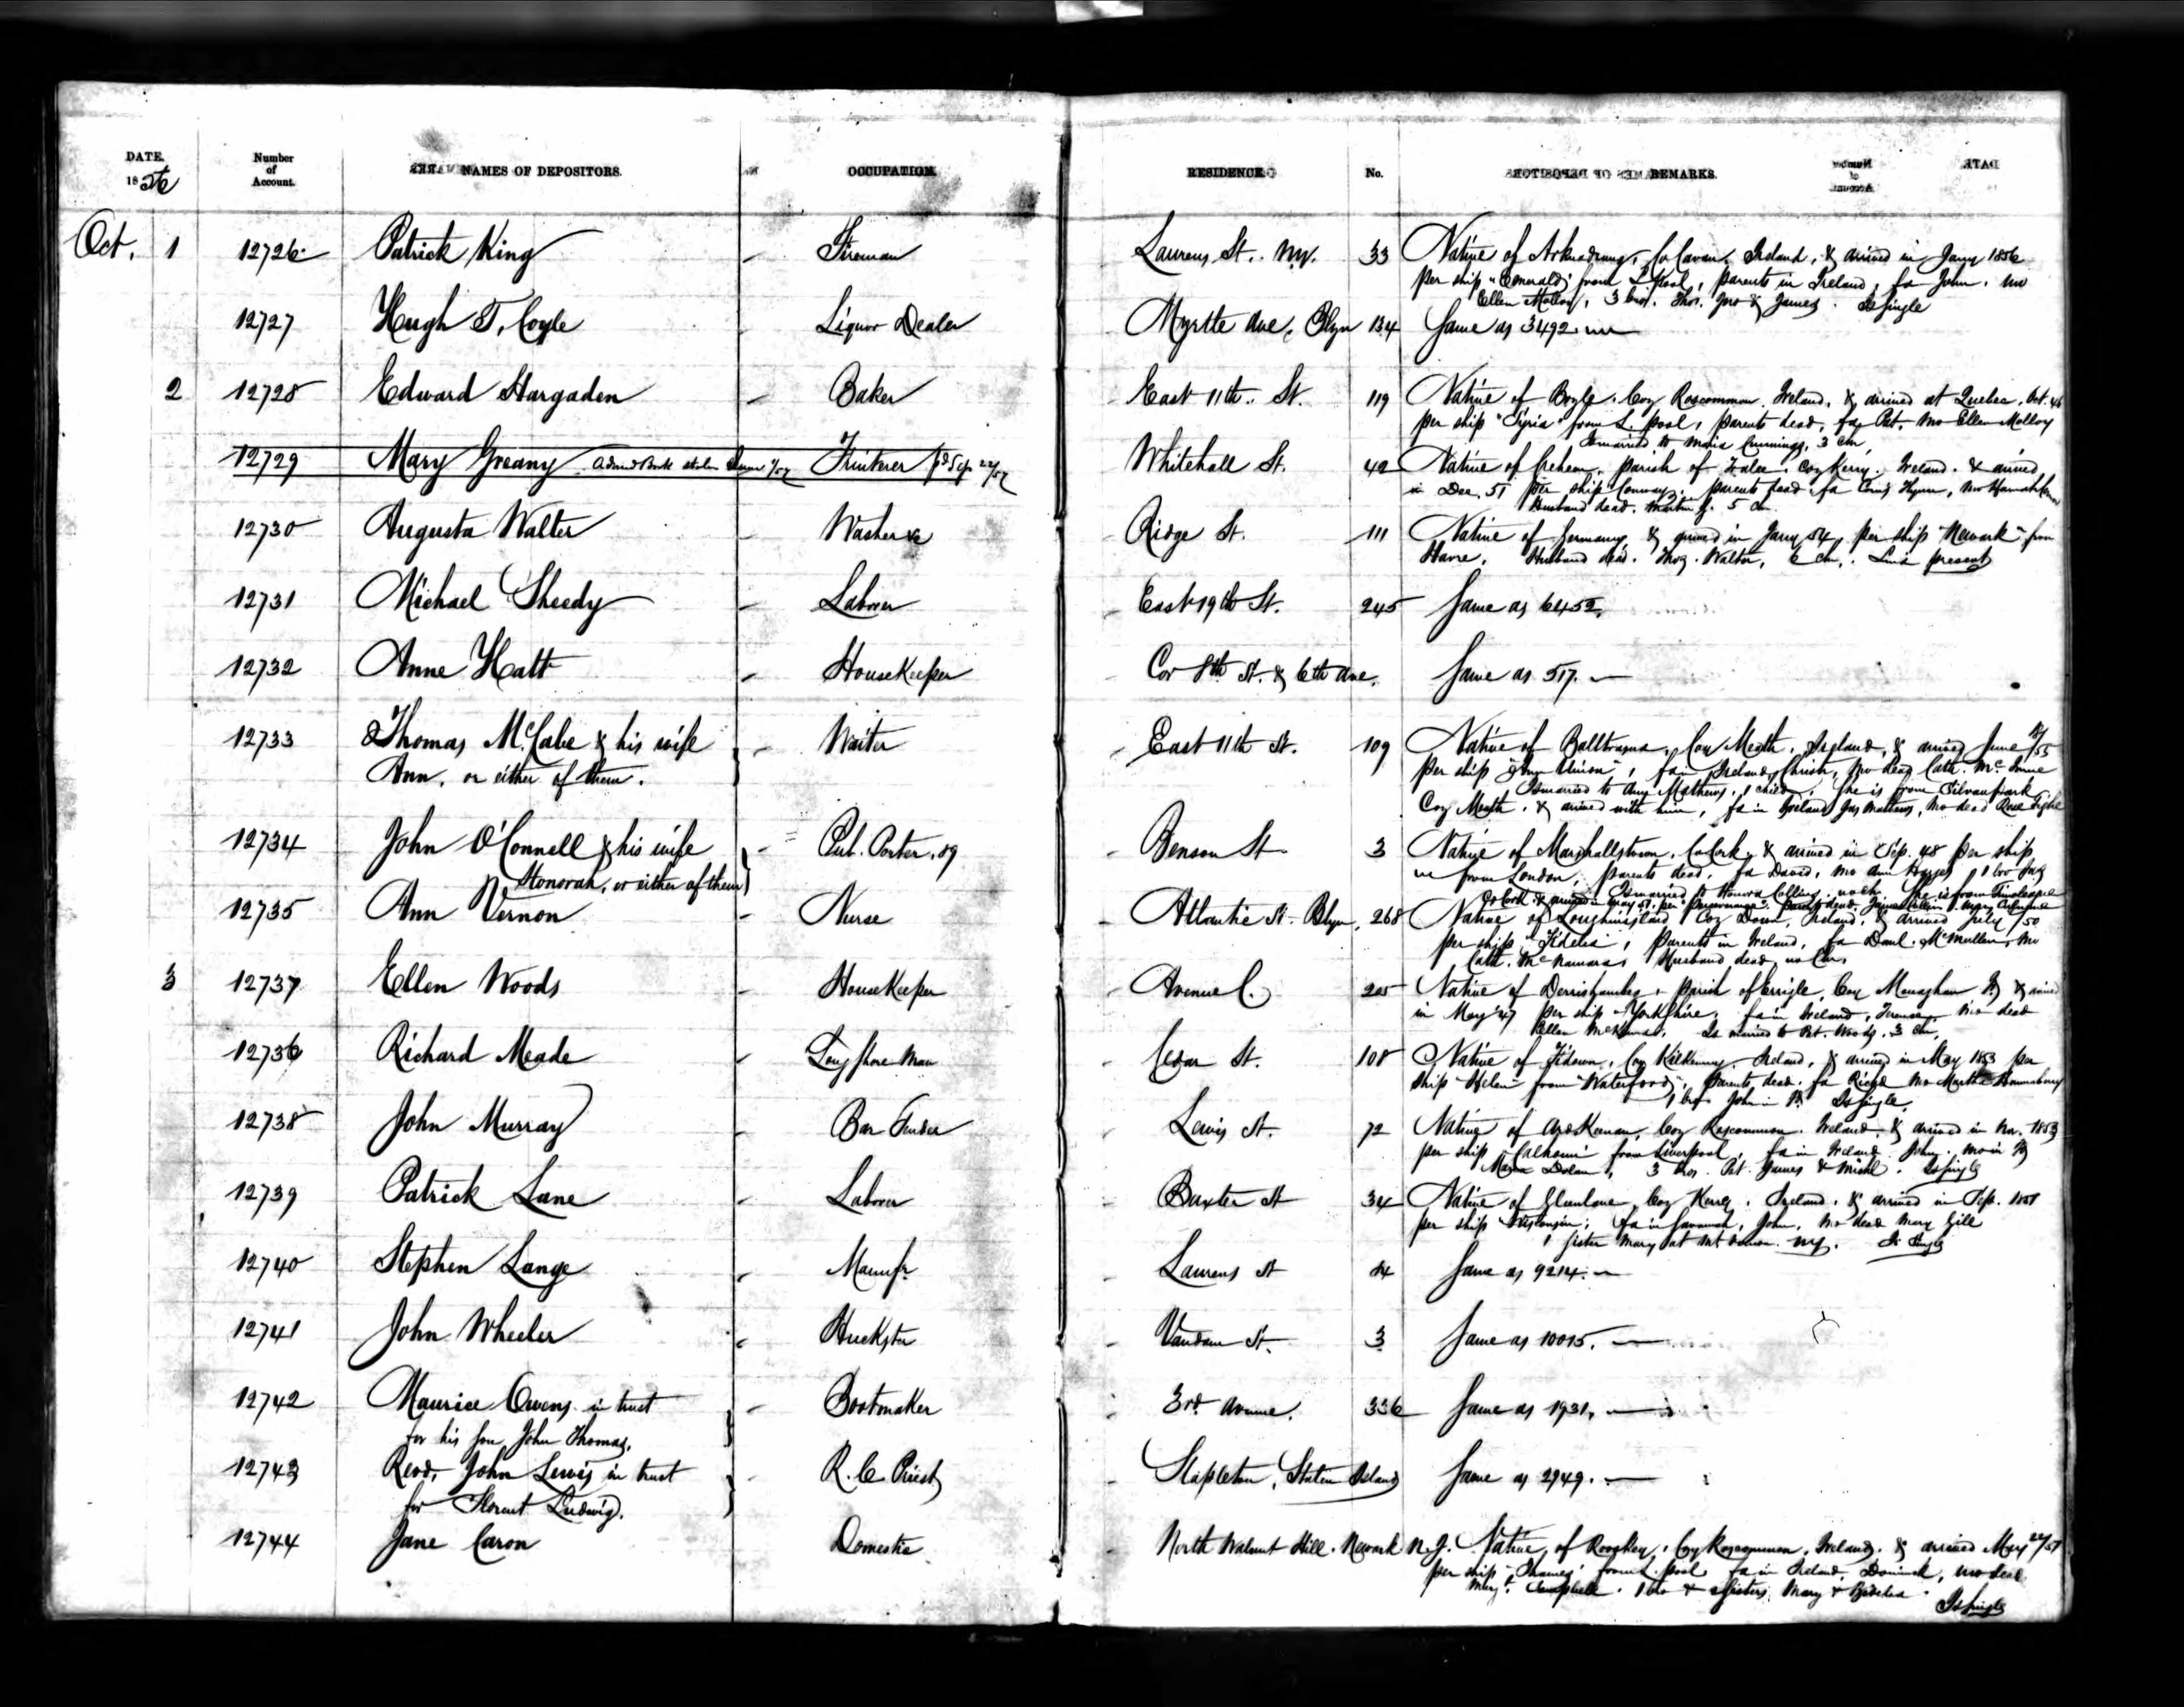 DATE. 1856
Number of Account.
NAMES OF DEPOSITORS.
OCCUPATION.
RESIDENCE.
No.
REMARKS.
Oct. 1 12726 Patrick King Fireman Laurens St. N.Y. 33 Native of Co Cavan, Ireland, & arrived in Jany 1856
per ship "Emerald" from L'pool, parents in Ireland, fa John, mo
Ellen Molloy, 3 bros. Thos. Jno & James. Is Single
12727 Hugh T. Coyle Liquor Dealer Myrtle Ave, Blyn 134 Same as 3492
2 12728 Edward Hargaden Baker East 11th St. 119 Native of Boyle, Coy Roscommon, Ireland, & arrived at Quebec, Oct. 46
per ship "Syria" from L.pool, parents dead, fa Pat. mo Ellen Molloy
Is married to Maria Cummings, 3 chn.
12729 Mary Greany Whitehall St. 42 Native of parish of Tralee, Coy Kerry, Ireland, & arrived
in Dec. 51 per ship "Conway", parents dead, fa mo Hannah
Husband dead. 5 chn.
12730 Augusta Walter Washer &c Ridge St. 111 Native of Germany, & arrived in Jany 54, per ship "Newark" from
Havre, Husband dead. Walter, 6 chn, present
12731 Michael Sheedy Laborer East 19th St. 245 Same as 6452.
12732 Anne Hatt HouseKeeper Cor 8th St. & 6th Ave. Same as 517.
12733 Thomas McCabe & his wife Waiter East 11th St. 109 Native of Coy Meath, Ireland, & arrived June /55
Ann, or either of them. per ship fa in Ireland, Christr, mo dead Cath.
Is married to Ann Mathews, 1 child, She is from
Coy Meath, & arrived with him, fa in Ireland Jas Mathews, mo dead Rose
12734 John O'Connell & his wife Pub. Porter, 89 Benson St 3 Native of Marshallstown, Co Cork, & arrived in Sep. 48 per ship
Honorah, or either of them from London, parents dead, fa David, mo Ann
Is married to Honora Collins, no chn. She is from Timoleague
Co Cork & arrived in May 51, per
12735 Ann Vernon Nurse Atlantic St. Blyn, 268 Native of Loughinisland, Coy Down, Ireland, & arrived July /50
per ship "Fidelia", parents in Ireland, fa Danl. McMullen, mo
Cath. McNamara, Husband dead, no Chn.
3 12737 Ellen Woods HouseKeeper Avenue C. 205 Native of parish of Errigle, Coy Monaghan & arrived
in May 47 per ship "Yorkshire", fa in Ireland, mo dead
Ellen McKenna, Is married to Pat. Woods, 3 chn.
12736 Richard Meade Long Shore Man Cedar St. 108 Native of Fidown, Coy Kilkenny, Ireland, & arrived in May 1853 per
ship "Helen" from "Waterford", parents dead, fa Richd mo Martha
1 bro John in Is Single.
12738 John Murray Bar Tender Lewis St. 72 Native of Coy Roscommon, Ireland, & arrived in Nov. 1853
per ship "Calhoun" from Liverpool, fa in Ireland John, mo in
Maria Dolan, 3 bros. Pat. James & Michl. Is Single
12739 Patrick Lane Laborer Baxter St 34 Native of Coy Kerry, Ireland, & arrived in Sep. 1851
per ship fa in Savannah, John, mo dead Mary Gill
1 sister Mary at Mt. Vernon N.Y. Is Single
12740 Stephen Lange Manufr. Laurens St 84 Same as 9214.
12741 John Wheeler Huckster Vandam St. 3 Same as 10015.
12742 Maurice Owens in trust Bootmaker 3rd Avenue. 336 Same as 1931.
for his son John Thomas.
12743 Revd. John Lewis in trust R.C. Priest Stapleton, Staten Island Same as 2949.
for Florent Ludwig.
12744 Jane Caron Domestic North Walnut Hill. Newark N.J. Native of Rooskey, Coy Roscommon, Ireland, & arrived May 22/51
per ship "Thames" from L.pool fa in Ireland, Dominick, mo dead
Mary Campbell. 1 bro & 2 sisters, Mary & Bedelia.
Is Single